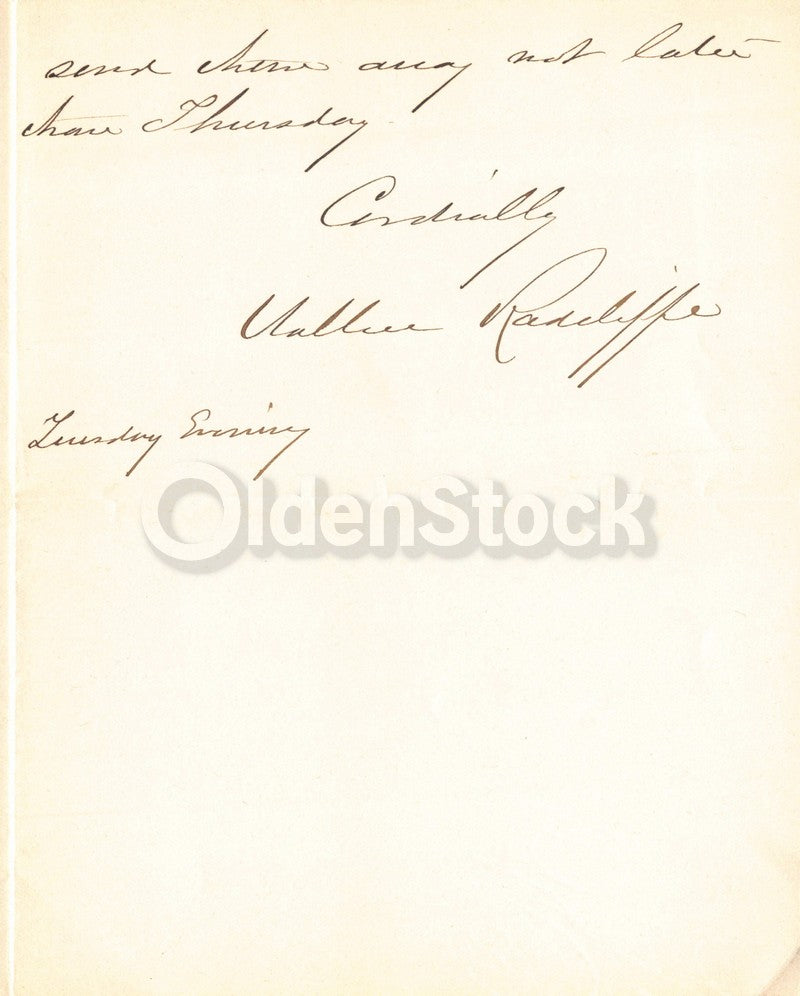 send them away not later
than Thursday.
Cordially
Wallace Radcliffe
Tuesday Evening
OldenStock